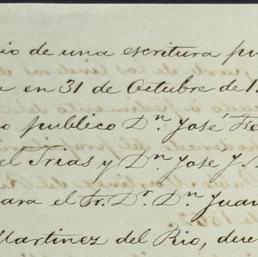 io de una escritura pu
a en 31 de Octubre de 1
o publico Dn. José
el Trias y Dn. José J.
para el Sr. Dr. Dn. Juan
Martinez del Rio, due